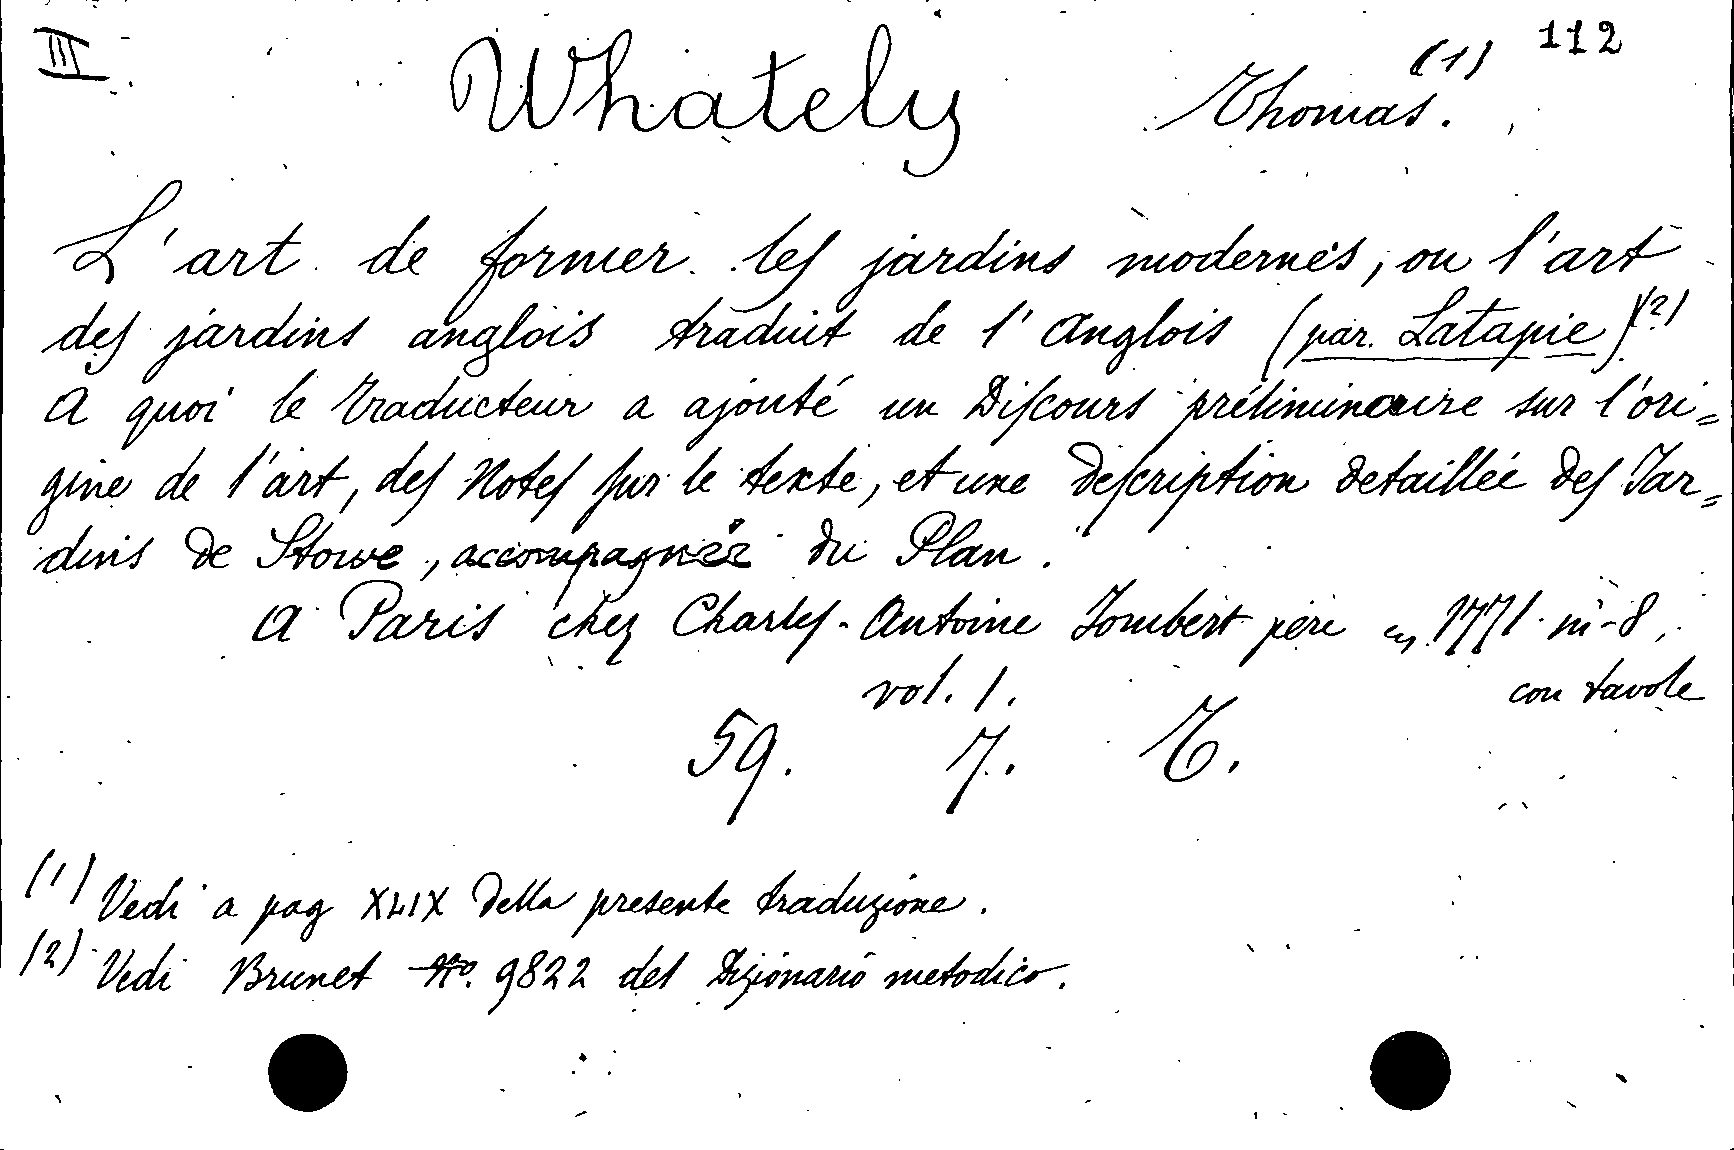 III Whately Thomas. (1) 112
L'art de former les jardins modernes, ou l'art
des jardins anglois traduit de l'Anglois (par Latapie) (2)
A quoi le traducteur a ajouté un Discours préliminaire sur l'ori=
gine de l'art, des Notes sur le texte, et une description detaillée des Jar=
dins de Stowe, accompagnée du Plan.
A Paris chez Charles-Antoine Jombert père en 1771 in-8,
vol. 1. con tavole
59. 7. T.
(1) Vedi a pag XLIX della presente traduzione.
(2) Vedi Brunet No. 9822 del Dizionario metodico.